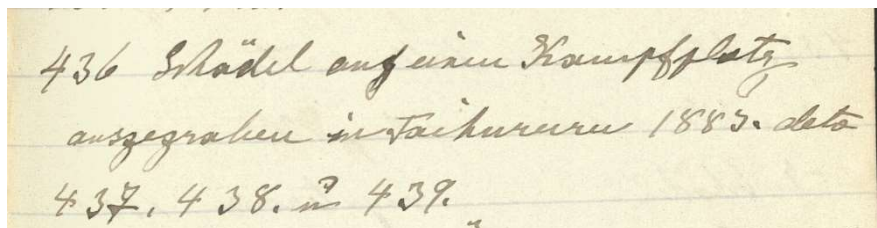 436 Schädel auf einem Kampfplatz
ausgegraben in Taihururu 1883. deto
437. 438. u 439.